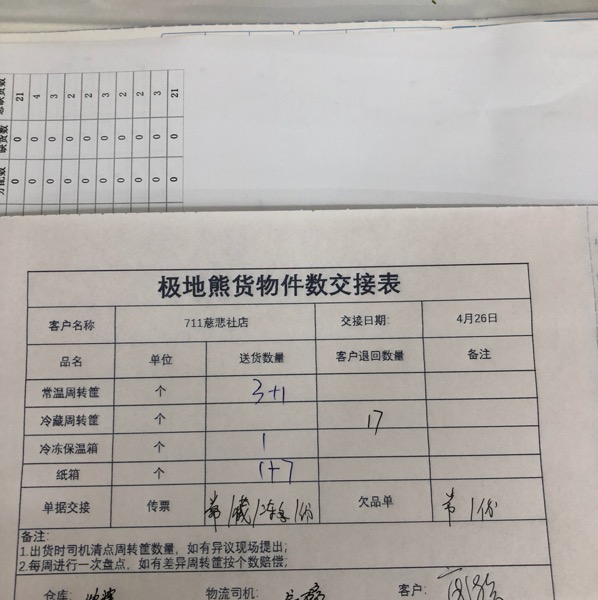 21 4 3 2 2 2 2 2 3 21
缺货数 0 0 0 0 0 0 0 0 0 0
分配数 0 0 0 0 0 0 0 0 0 0
极地熊货物件数交接表
客户名称 711慈悲社店 交接日期: 4月26日
品名 单位 送货数量 客户退回数量 备注
常温周转筐 个 3+1
冷藏周转筐 个 17
冷冻保温箱 个 1
纸箱 个 1+7
单据交接 传票 1份 欠品单 常1份
备注:
1.出货时司机清点周转筐数量，如有异议现场提出;
2.每周进行一次盘点，如有差异周转筐按个数赔偿;
仓库: 物流司机: 客户: